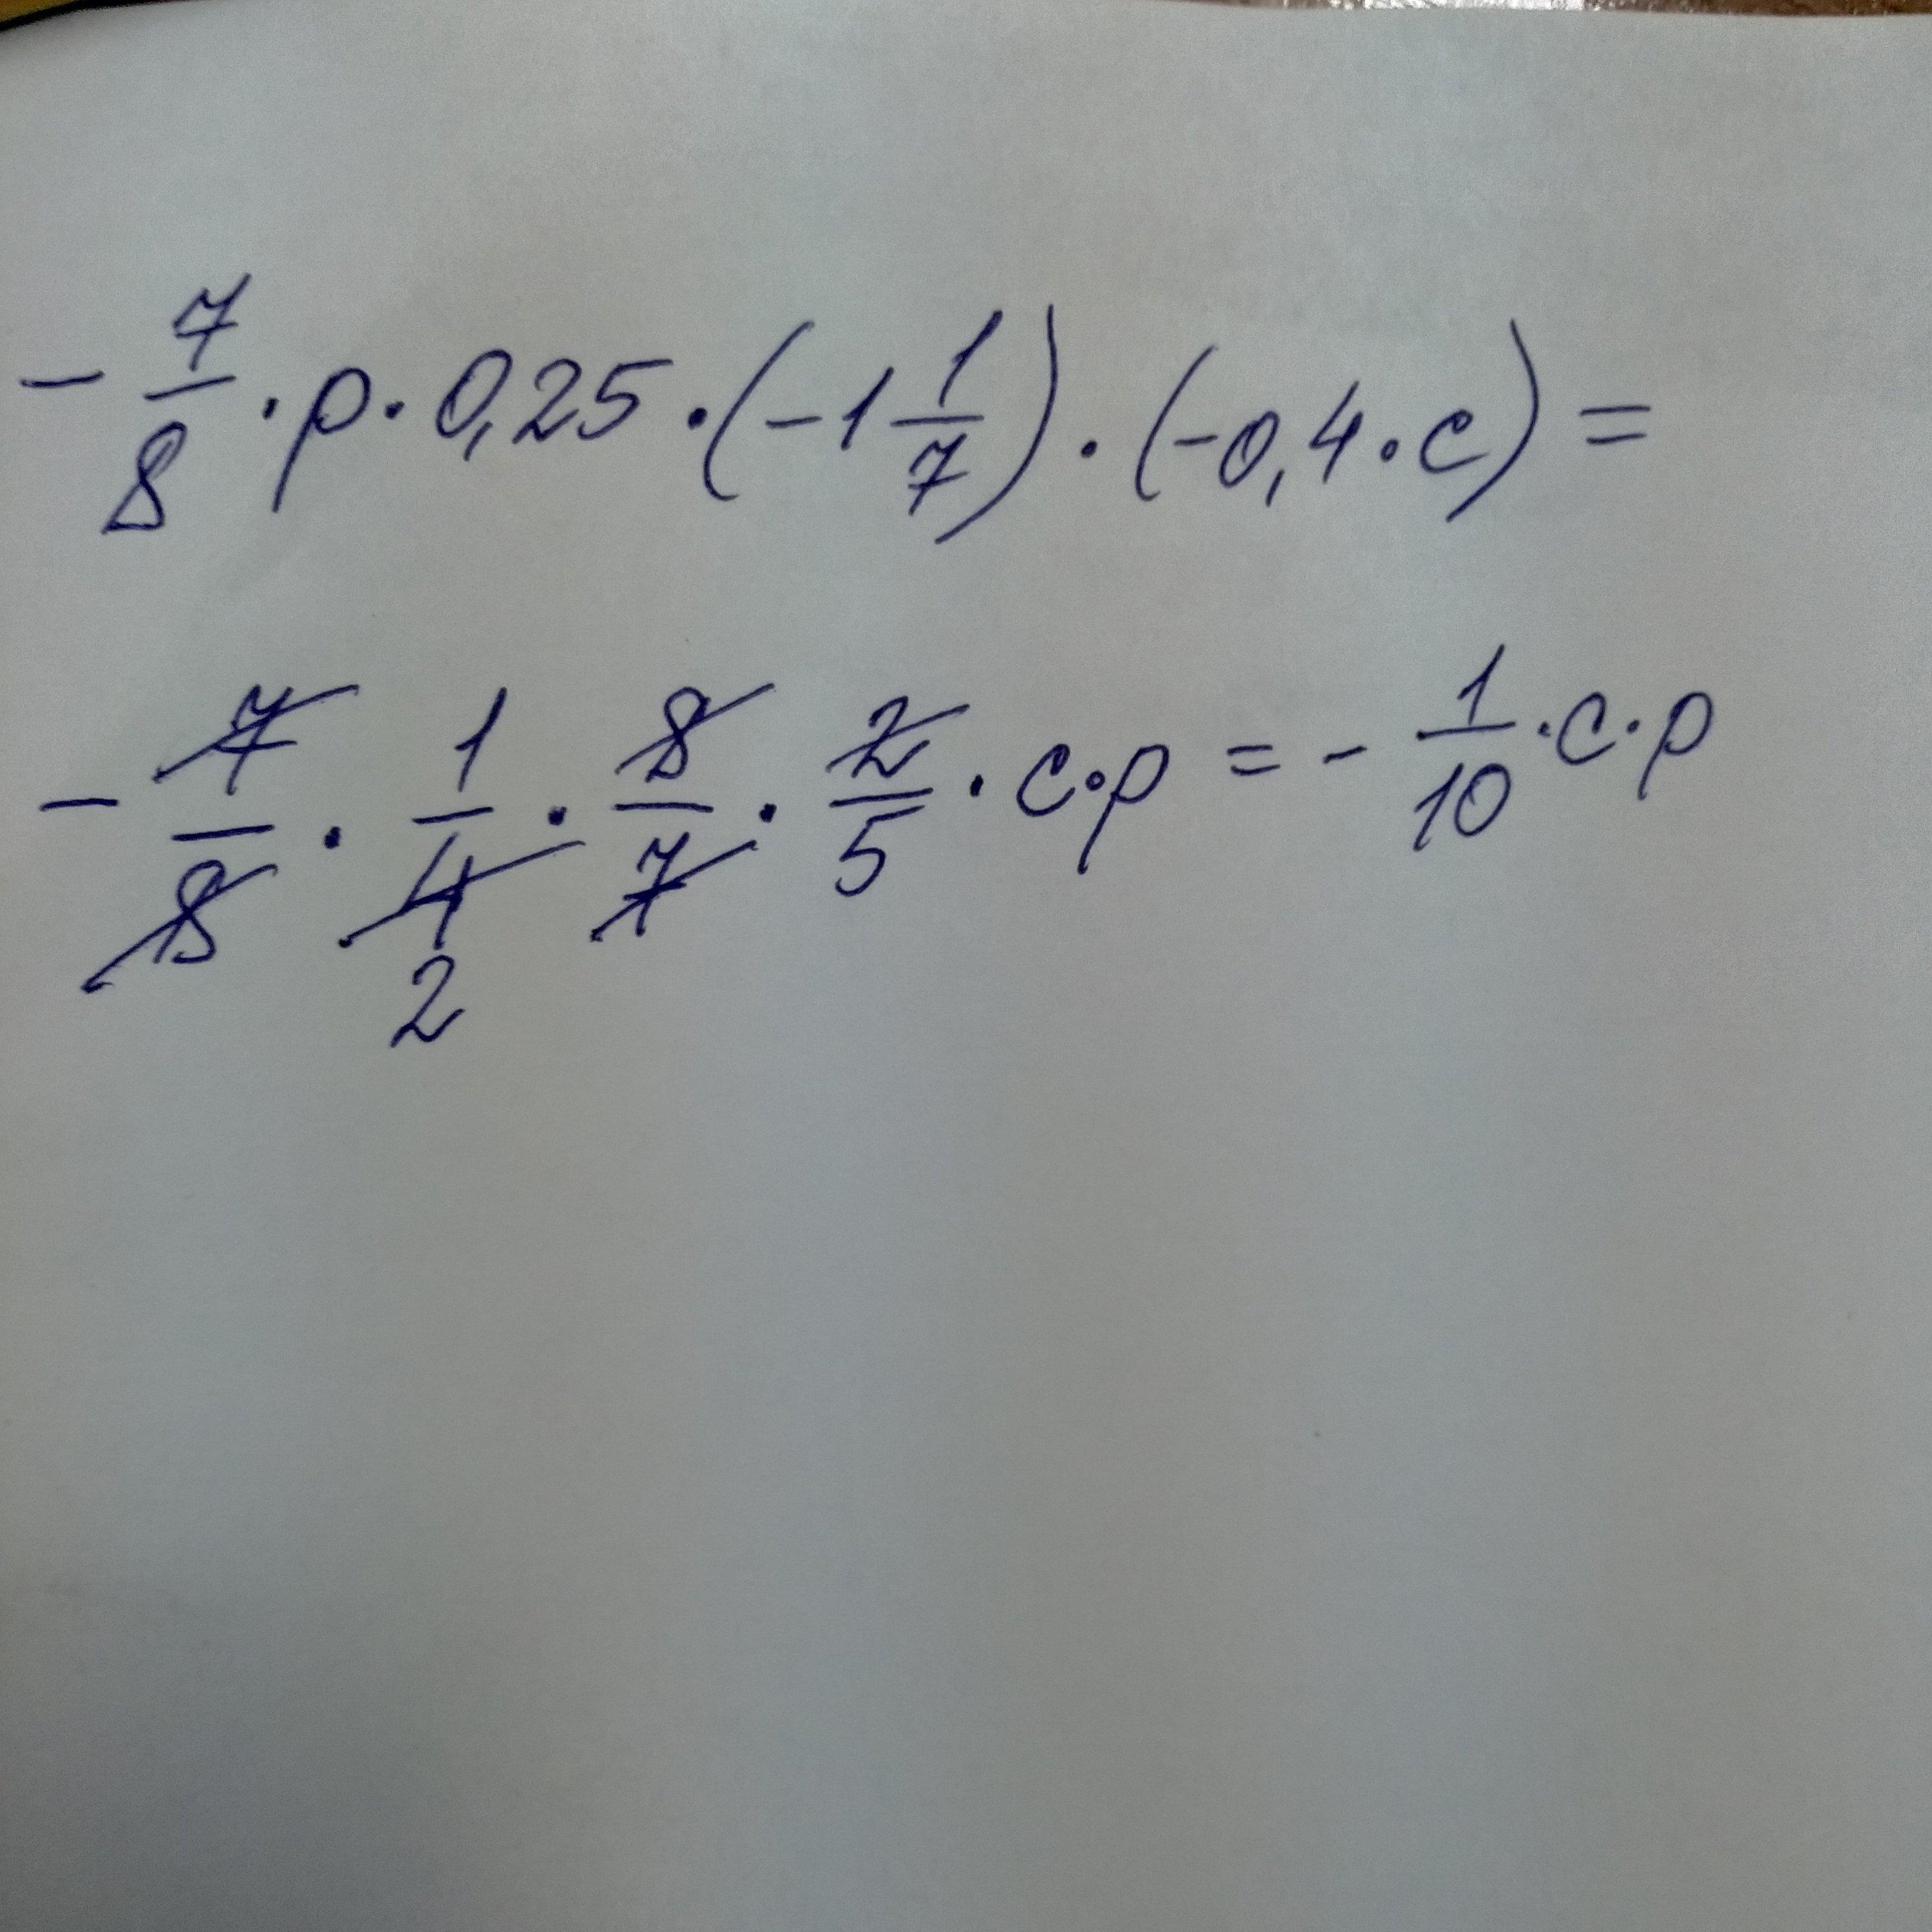 - 7/8 · p · 0,25 · (-1 1/7) · (-0,4 · c) =
- 7/8 · 1/4 · 8/7 · 2/5 · c · p = - 1/10 · c · p
2